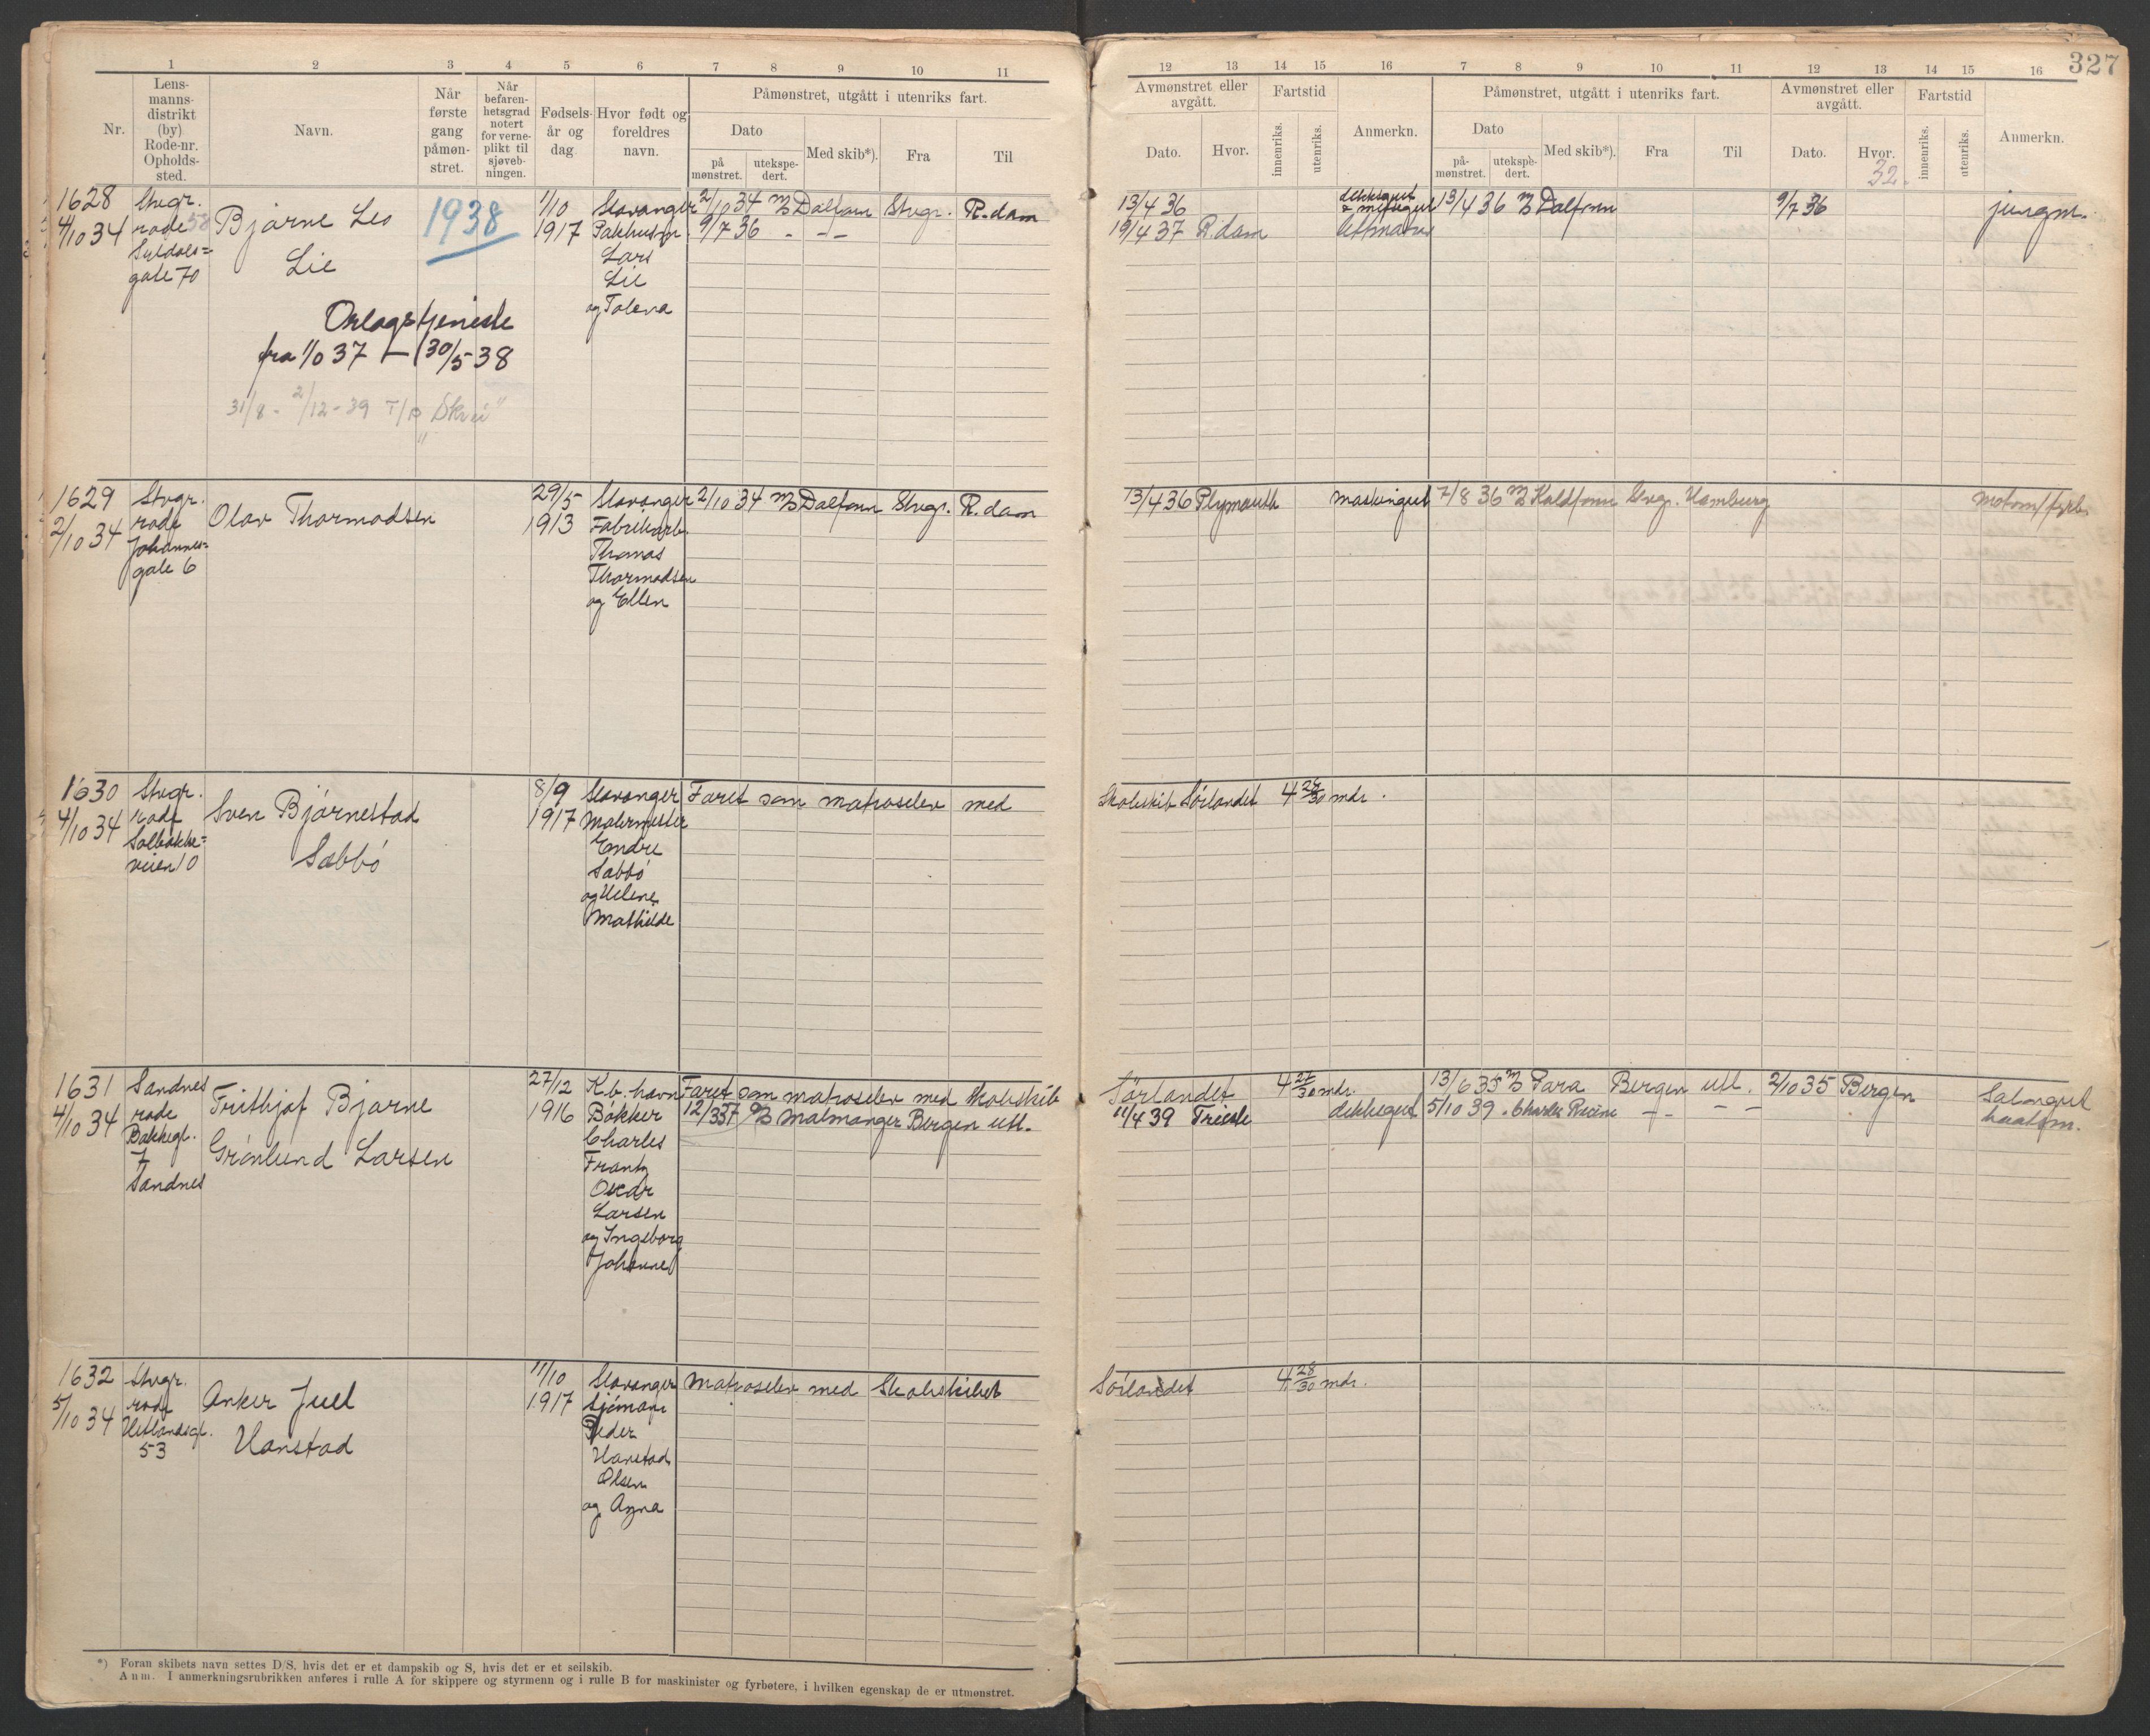 327
1 2 3 4 5 6 7 8 9 10 11
Nr.
Lens-
manns-
distrikt
(by)
Rode-nr.
Opholds-
sted.
Navn.
Når
første
gang
påmøn-
stret.
Når
befaren-
hetsgrad
notert
for verne-
plikt til
sjøveb-
ningen.
Fødsels-
år og
dag
Hvor født og
foreldres
navn.
Påmønstret, utgått i utenriks fart.
Dato
på
mønstret.
utekspe-
dert.
Med skib*).
Fra
Til
12 13 14 15 16 7 8 9 10 11 12 13 14 15 16
Avmønstret eller
avgått.
Dato.
Hvor.
Fartstid
innenriks.
utenriks.
Anmerkn.
Påmønstret, utgått i utenriks fart.
Dato
på-
mønstret.
utekspe-
dert.
Med skib*).
Fra
Til
Avmønstret eller
avgått.
Dato.
Hvor.
32.
Fartstid
innenriks.
utenriks.
Anmerkn.
1628
4/10 34
Stvgr.
rode 58
gate 70
Bjarne Leo
Lie
1938
1/10
1917
Stavanger
Pakhusm.
Lars
Lie
og Tolena
2/10 34 M Dalfonn Stvgr. R.dam
9/7 36 - - -
Orlogstjeneste
fra 1/10 37 - 30/5 38
31/8 - 2/12 - 39 T/B "Skrei"
13/4 36 dekksgut
& messegut 13/4 36 M Dalfonn 9/7 36 jungm.
19/4 37 R.dam lettmatros
1629
2/10 34
Stvgr.
rode
Johannes=
gate 6
Olav Thormodsen
29/5
1913
Stavanger
Fabrikarb.
Thomas
Thormodsen
og Ellen
2/10 34 M Dalfonn Stvgr. R.dam
13/4 36 Plymouth maskingut 7/8 36 M Kaldfonn Svg. Hamburg motorm/fyrb.
1630
4/10 34
Stvgr.
rode
Solbakke=
veien 10
Sven Bjørnestad
Sæbbø
8/9
1917
Stavanger
Malermester
Endre
Sæbbø
og Helene
Mathilde
Faret som matroselev med
Skoleskib Sørlandet 4 27/30 mdr.
1631
4/10 34
Sandnes
rode
Bakkegt.
7
Sandnes
Frithjof Bjarne
Grønlund Larsen
27/12
1916
K.b.havn
Bakker
Charles
Frantz
Oscar
Larsen
og Ingeborg
Johanne
Faret som matroselev med Skoleskib
Malmanger Bergen utl.
Sørlandet 4 27/30 mdr. 13/6 35 M Para Bergen utl. 2/10 35 Bergen Salongut
11/4 39 Trieste dekksgut 5/10 39 - Charles Racine - - - - baatsm.
1632
5/10 34
Stvgr.
rode
Hetlandsgt.
53
Anker Juel
Hanstad
11/10
1917
Stavanger
Sjømann
Peder
Hanstad
Olsen
og Anna
Matroselev med Skoleskibet
Sørlandet 4 28/30 mdr.
*) Foran skibets navn settes D/S, hvis det er et dampskib og S, hvis det er et seilskib.
Anm. I anmerkningsrubrikken anføres i rulle A for skippere og styrmenn og i rulle B for maskinister og fyrbøtere, i hvilken egenskap de er utmønstret.